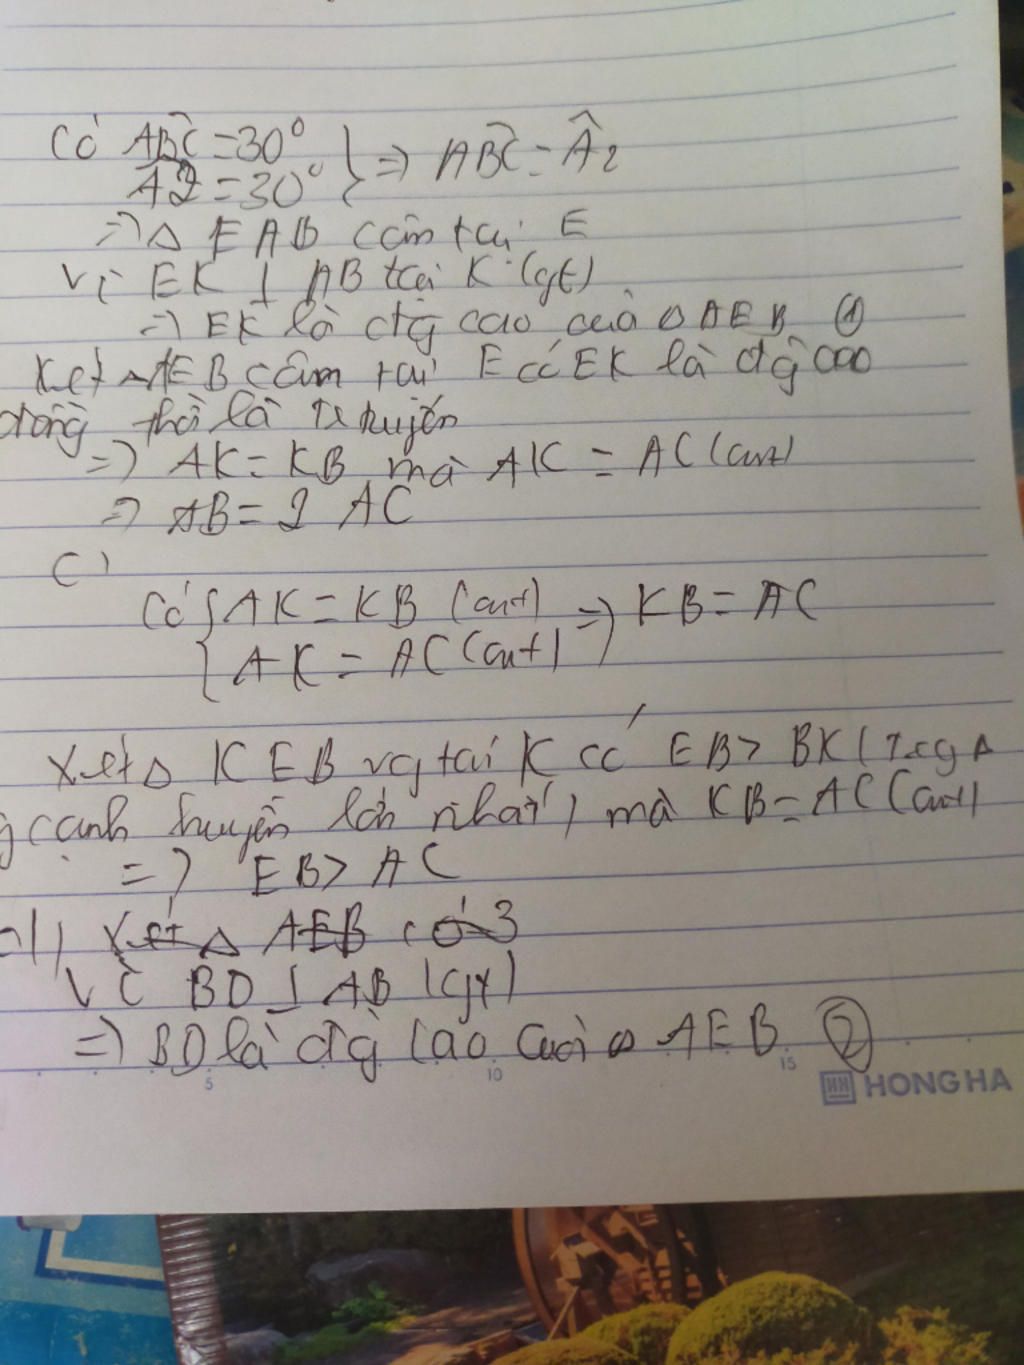 Có ABC = 30°
A2 = 30° } => ABC = Â2
=> Δ EAB cân tại E
Vì EK ⊥ AB tại K (gt)
=> EK là đg cao của Δ AEB ①
Xét Δ AEB cân tại E có EK là đg cao
đồng thời là Tr tuyến
=> AK = KB mà AK = AC (cmt)
=> AB = 2 AC
c)
Có { AK = KB (cmt) => KB = AC
AK = AC (cmt)
Xét Δ KEB vg tại K có EB > BK ( Δ
cạnh huyền lớn nhất ) mà KB = AC (cmt)
=> EB > AC
d) Xét Δ AEB có 3
Vì BD ⊥ AB (gt)
=> BD là đg cao của Δ AEB ②
5 10 15
HONG HA